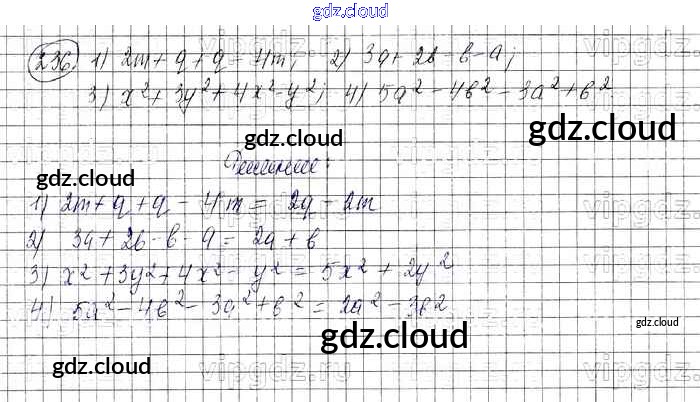 gdz.cloud
236. 1) 2m + q + q - 4m; 2) 3a + 2b - b - a;
3) x² + 3y² + 4x² - y²; 4) 5a² - 4b² - 3a² + b²
gdz.cloud gdz.cloud
Решение:
gdz.cloud
1) 2m + q + q - 4m = 2q - 2m
2) 3a + 2b - b - a = 2a + b
3) x² + 3y² + 4x² - y² = 5x² + 2y²
4) 5a² - 4b² - 3a² + b² = 2a² - 3b²
gdz.cloud gdz.cloud
gdz.cloud